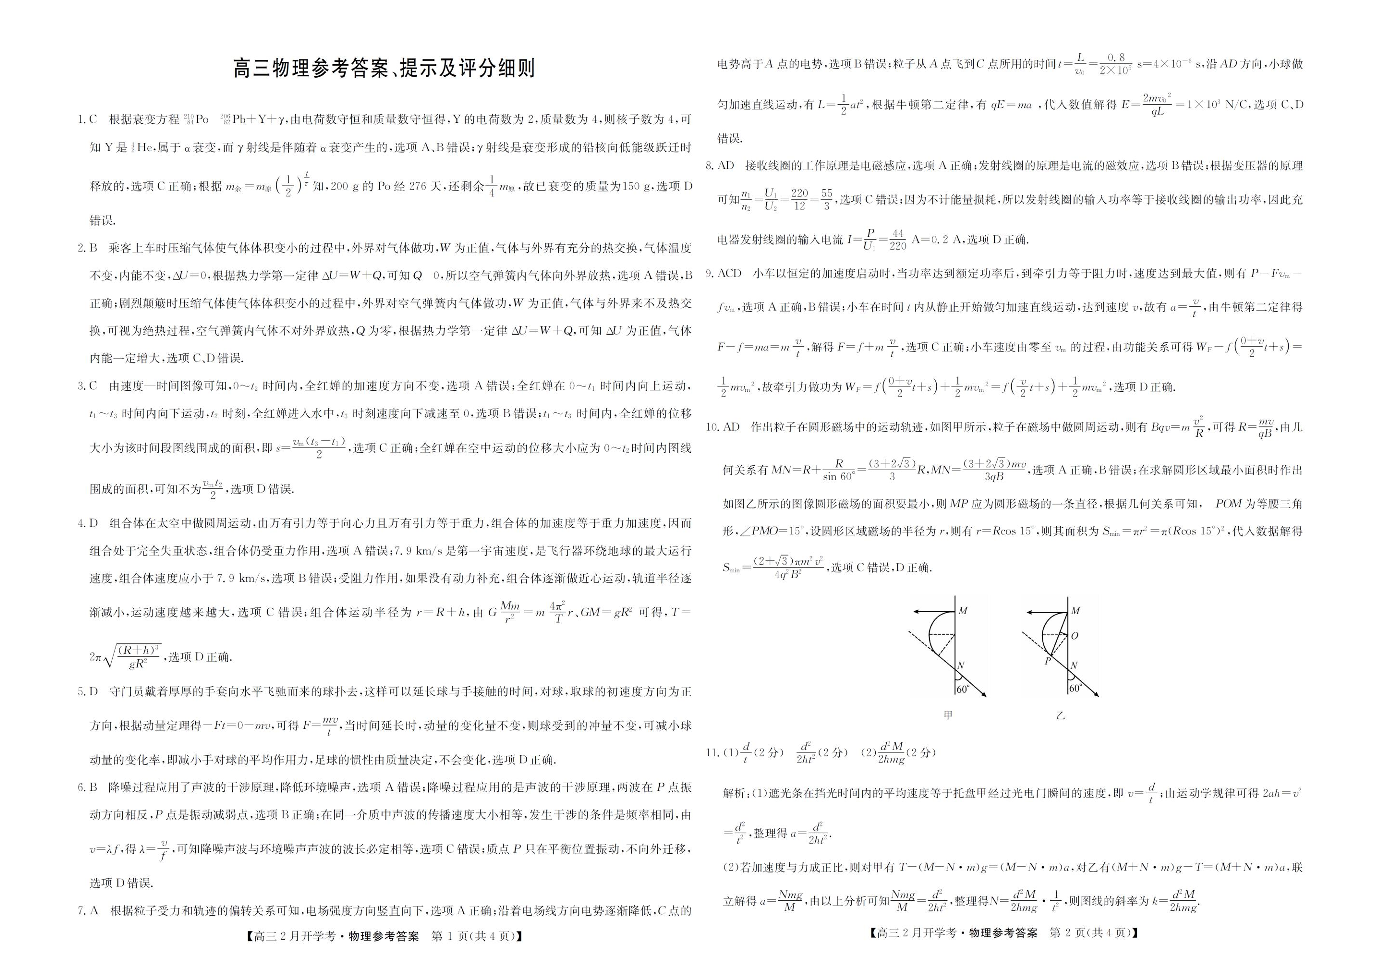 高三物理参考答案、提示及评分细则
1. C 根据衰变方程 Po Pb+Y+γ,由电荷数守恒和质量数守恒得,Y 的电荷数为 2,质量数为 4,则核子数为 4,可
知 Y 是 He,属于 α 衰变,而 γ 射线是伴随着 α 衰变产生的,选项 A、B 错误;γ 射线是衰变形成的铅核向低能级跃迁时
释放的,选项 C 正确;根据 m余=m原(1/2)^(t/τ) 知,200 g 的 Po 经 276 天,还剩余 1/4 m原,故已衰变的质量为150 g,选项 D
错误.
2. B 乘客上车时压缩气体使气体体积变小的过程中,外界对气体做功,W 为正值,气体与外界有充分的热交换,气体温度
不变,内能不变,ΔU=0,根据热力学第一定律 ΔU=W+Q,可知 Q 0,所以空气弹簧内气体向外界放热,选项 A 错误,B
正确;剧烈颠簸时压缩气体使气体体积变小的过程中,外界对空气弹簧内气体做功,W 为正值,气体与外界来不及热交
换,可视为绝热过程,空气弹簧内气体不对外界放热,Q 为零,根据热力学第一定律 ΔU=W+Q,可知 ΔU 为正值,气体
内能一定增大,选项 C、D 错误.
3. C 由速度—时间图像可知,0~t₂ 时间内,全红婵的加速度方向不变,选项 A 错误;全红婵在 0~t₁ 时间内向上运动,
t₁~t₃ 时间内向下运动,t₂ 时刻,全红婵进入水中,t₃ 时刻速度向下减速至 0,选项 B 错误;t₁~t₃ 时间内,全红婵的位移
大小为该时间段图线围成的面积,即 s=vm(t₃−t₁)/2,选项 C 正确;全红婵在空中运动的位移大小应为 0~t₂时间内图线
围成的面积,可知不为 vmt₂/2,选项 D 错误.
4. D 组合体在太空中做圆周运动,由万有引力等于向心力且万有引力等于重力,组合体的加速度等于重力加速度,因而
组合处于完全失重状态,组合体仍受重力作用,选项 A 错误;7.9 km/s 是第一宇宙速度,是飞行器环绕地球的最大运行
速度,组合体速度应小于 7.9 km/s,选项 B 错误;受阻力作用,如果没有动力补充,组合体逐渐做近心运动,轨道半径逐
渐减小,运动速度越来越大,选项 C 错误;组合体运动半径为 r=R+h,由 G Mm/r²=m 4π²/T r、GM=gR² 可得,T=
2π√((R+h)³/gR²),选项 D 正确.
5. D 守门员戴着厚厚的手套向水平飞驰而来的球扑去,这样可以延长球与手接触的时间,对球,取球的初速度方向为正
方向,根据动量定理得−Ft=0−mv,可得 F=mv/t,当时间延长时,动量的变化量不变,则球受到的冲量不变,可减小球
动量的变化率,即减小手对球的平均作用力,足球的惯性由质量决定,不会变化,选项 D 正确.
6. B 降噪过程应用了声波的干涉原理,降低环境噪声,选项 A 错误;降噪过程应用的是声波的干涉原理,两波在 P 点振
动方向相反,P 点是振动减弱点,选项 B 正确;在同一介质中声波的传播速度大小相等,发生干涉的条件是频率相同,由
v=λf,得 λ=v/f,可知降噪声波与环境噪声声波的波长必定相等,选项 C 错误;质点 P 只在平衡位置振动,不向外迁移,
选项 D 错误.
7. A 根据粒子受力和轨迹的偏转关系可知,电场强度方向竖直向下,选项 A 正确;沿着电场线方向电势逐渐降低,C 点的
【高三 2 月开学考·物理参考答案 第 1 页(共 4 页)】
电势高于 A 点的电势,选项 B 错误;粒子从 A 点飞到 C 点所用的时间 t=L/v₀=0.8/ s=4×10 s,沿 AD 方向,小球做
匀加速直线运动,有 L=1/2 at²,根据牛顿第二定律,有 qE=ma ,代入数值解得 E=2mv₀²/qL=1×10 N/C,选项 C、D
错误.
8. AD 接收线圈的工作原理是电磁感应,选项 A 正确;发射线圈的原理是电流的磁效应,选项 B 错误;根据变压器的原理
可知 n₁/n₂=U₁/U₂=220/12=55/3,选项 C 错误;因为不计能量损耗,所以发射线圈的输入功率等于接收线圈的输出功率,因此充
电器发射线圈的输入电流 I=P/U₁=44/220 A=0.2 A,选项 D 正确.
9. ACD 小车以恒定的加速度启动时,当功率达到额定功率后,到牵引力等于阻力时,速度达到最大值,则有 P=Fvm=
fvm,选项 A 正确,B 错误;小车在时间 t 内从静止开始做匀加速直线运动,达到速度 v,故有 a=v/t,由牛顿第二定律得
F−f=ma=m v/t,解得 F=f+m v/t,选项 C 正确;小车速度由零至 vm 的过程,由功能关系可得 WF−f((0+v)/2 t+s)=
1/2 mvm²,故牵引力做功为 WF=f((0+v)/2 t+s)+1/2 mvm²=f(v/2 t+s)+1/2 mvm²,选项 D 正确.
10. AD 作出粒子在圆形磁场中的运动轨迹,如图甲所示,粒子在磁场中做圆周运动,则有 Bqv=m v²/R,可得 R=mv/qB,由几
何关系有 MN=R+R/sin 60°=(3+2√3)/3 R,MN=(3+2√3)mv/3qB,选项 A 正确,B 错误;在求解圆形区域最小面积时作出
如图乙所示的图像圆形磁场的面积要最小,则 MP 应为圆形磁场的一条直径,根据几何关系可知, POM 为等腰三角
形,∠PMO=15°,设圆形区域磁场的半径为 r,则有 r=Rcos 15°,则其面积为 Smin=πr²=π(Rcos 15°)²,代入数据解得
Smin=(2+√3)πm²v²/4q²B²,选项 C 错误,D 正确.
M
N
60°
甲
M
O
P
N
60°
乙
11. (1) d/t (2 分) d²/2ht² (2 分) (2) d²M/2hmg (2 分)
解析:(1)遮光条在挡光时间内的平均速度等于托盘甲经过光电门瞬间的速度,即 v=d/t;由运动学规律可得 2ah=v²
=d²/t²,整理得 a=d²/2ht².
(2)若加速度与力成正比,则对甲有 T−(M−N·m)g=(M−N·m)a,对乙有(M+N·m)g−T=(M+N·m)a,联
立解得 a=Nmg/M,由以上分析可知 Nmg/M=d²/2ht²,整理得N=d²M/2hmg·1/t²,则图线的斜率为 k=d²M/2hmg.
【高三 2 月开学考·物理参考答案 第 2 页(共 4 页)】